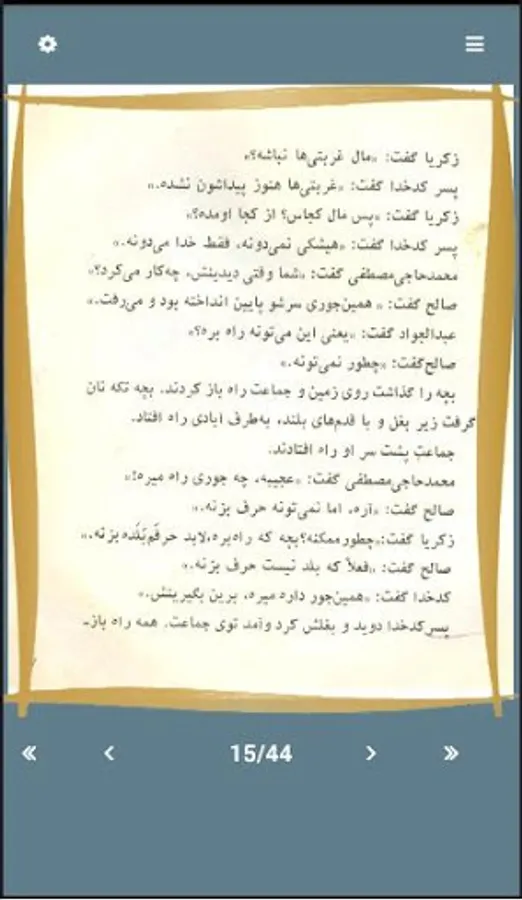 زکریا گفت: «مال غربتی‌ها نباشه؟»
پسر کدخدا گفت: «غربتی‌ها هنوز پیداشون نشده.»
زکریا گفت: «پس مال کجاس؟ از کجا اومده؟»
پسر کدخدا گفت: «هیشکی نمی‌دونه، فقط خدا می‌دونه.»
محمدحاجی‌مصطفی گفت: «شما وقتی دیدینش، چه‌کار می‌کرد؟»
صالح گفت: «همین‌جوری سرشو پایین انداخته بود و می‌رفت.»
عبدالجواد گفت: «یعنی این می‌تونه راه بره؟»
صالح‌گفت: «چطور نمی‌تونه.»
بچه را گذاشت روی زمین و جماعت راه باز کردند. بچه تکه نان
گرفت زیر بغل و با قدم‌های بلند، به‌طرف آبادی راه افتاد.
جماعت پشت سر او راه افتادند.
محمدحاجی‌مصطفی گفت: «عجیبه، چه جوری راه میره!»
صالح گفت: «آره، اما نمی‌تونه حرف بزنه.»
زکریا گفت:«چطورممکنه؟بچه که راه‌بره،لابد حرفم‌بَلَده بزنه.»
صالح گفت: «فعلاً که بلد نیست حرف بزنه.»
کدخدا گفت: «همین‌جور داره میره، برین بگیرینش.»
پسرکدخدا دوید و بغلش کرد وآمد توی جماعت. همه راه باز-
15/44